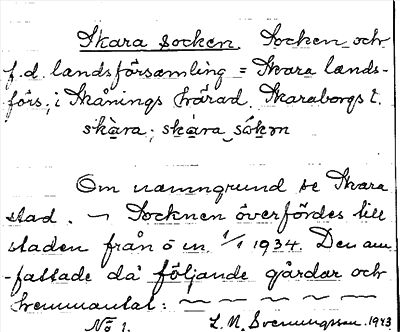 Skara socken. Socken och
f.d. landsförsamling = Skara lands-
förs. i Skånings härad. Skaraborgs l.
skàra; skàra sókṇ
Om namngrund se Skara
stad. — Socknen överfördes till
staden från o m. 1/1 1934. Den om-
-fattade då följande gårdar och
hemmantal: ~ ~ ~ ~ ~
No 1. L. M. Svenungsson 1943